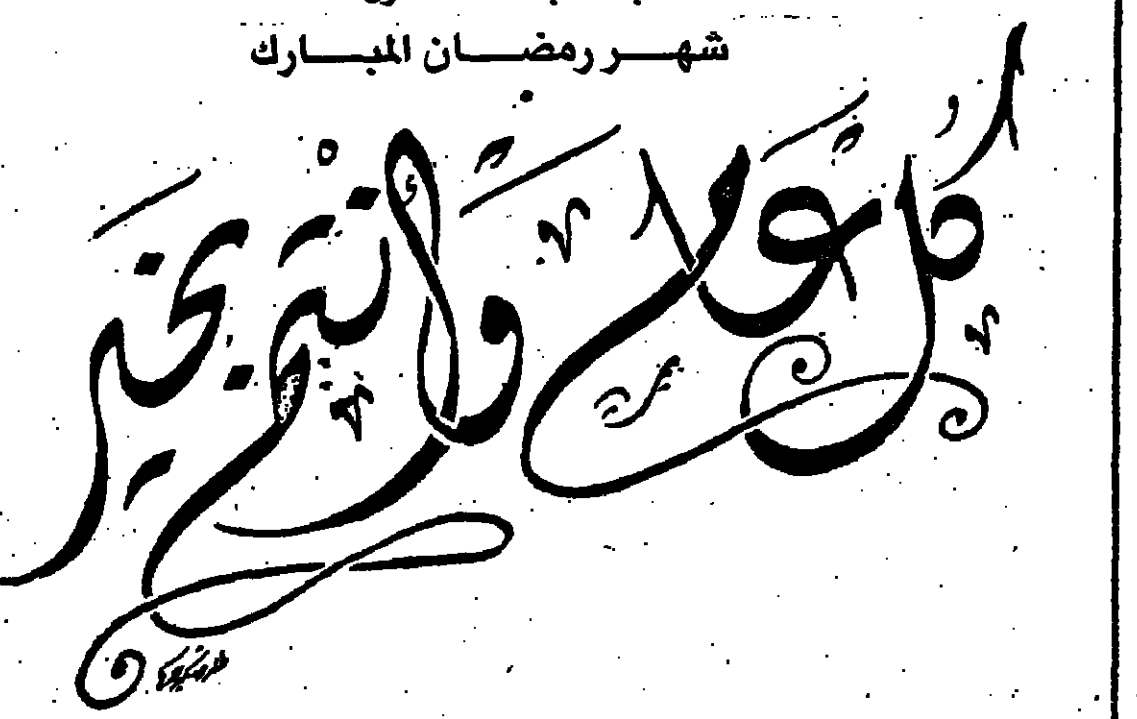 شهر رمضان المبارك
كُل عام وَأنتم بخير